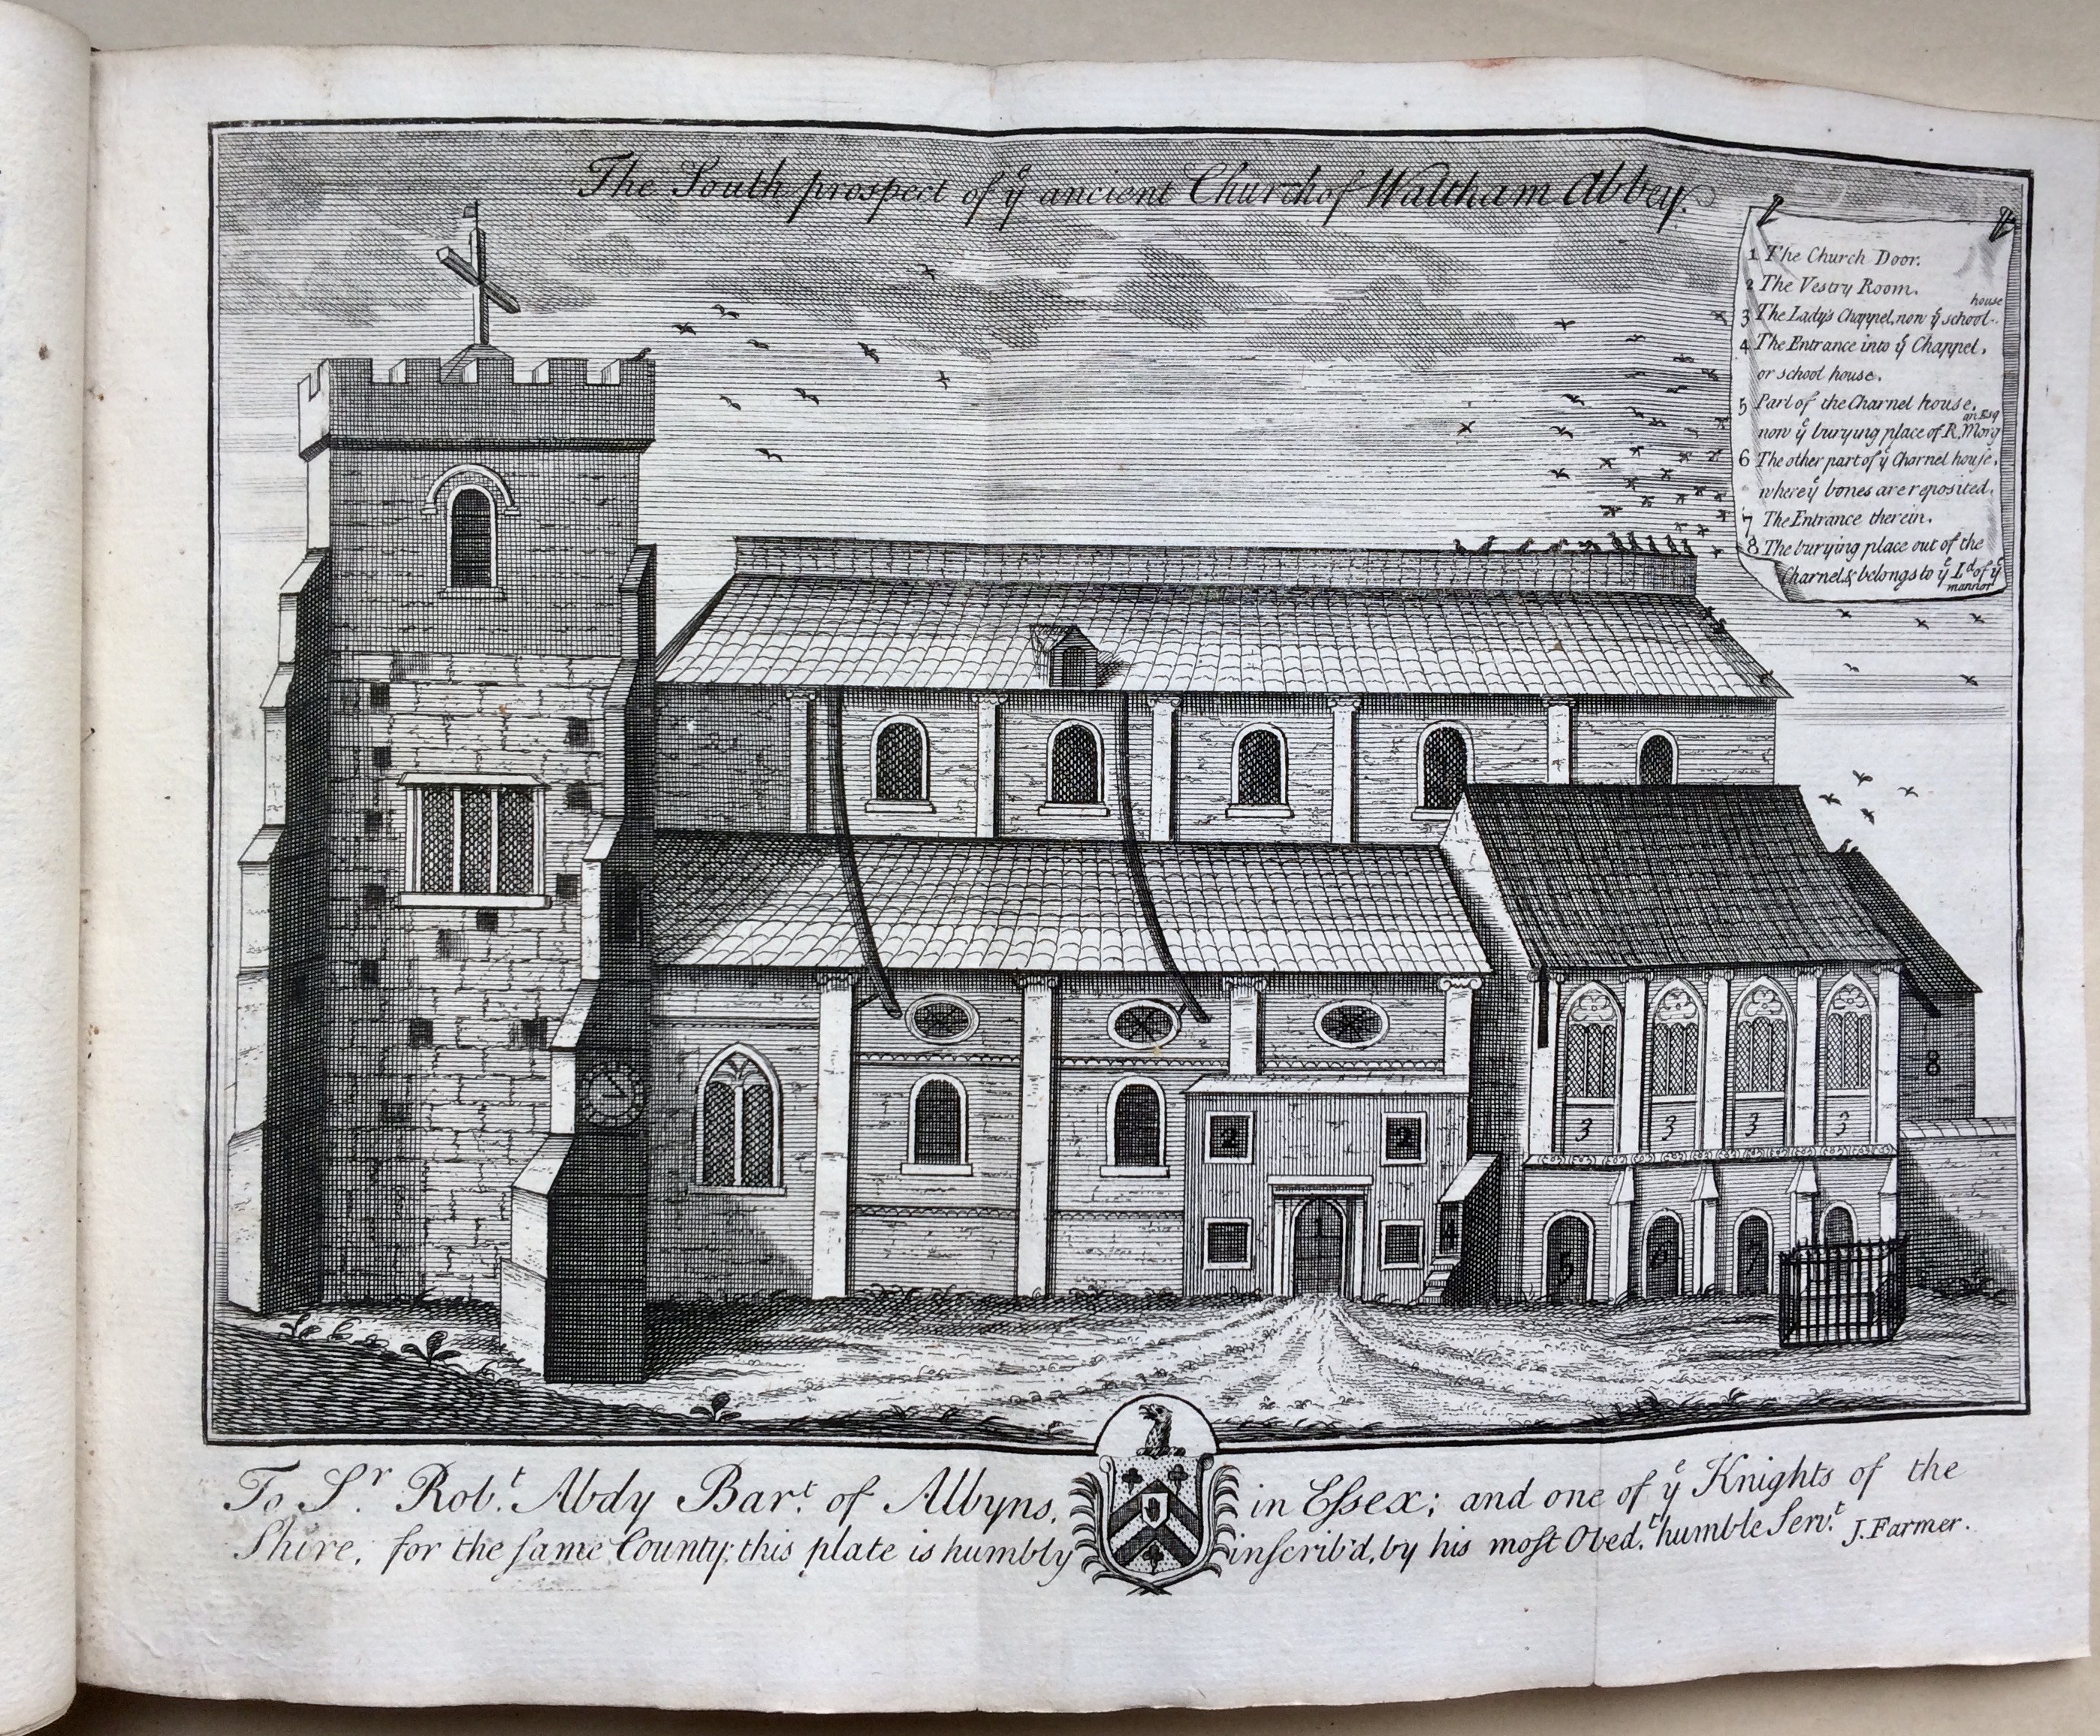 The South prospect of yͤ ancient Church of Waltham Abbey.
1 The Church Door.
2 The Vestry Room.
3 The Lady's Chappel, now yͤ school house
4 The Entrance into yͤ Chappel,
or school house.
5 Part of the Charnel house,
now yͤ burying place of R. Morgan Esq
6 The other part of yͤ Charnel house,
where yͤ bones are reposited.
7 The Entrance therein.
8 The burying place out of the
Charnel, & belongs to yͤ Lᵈ of yͤ mannor
8
3 3 3 3
2 2
1 4 5 6 7
To Sʳ. Robᵗ. Abdy Barᵗ. of Albyns, in Eſsex; and one of yͤ Knights of the
Shire, for the ſame County; this plate is humbly inſcrib'd, by his moſt Obedᵗ. humble Servᵗ. J. Farmer.